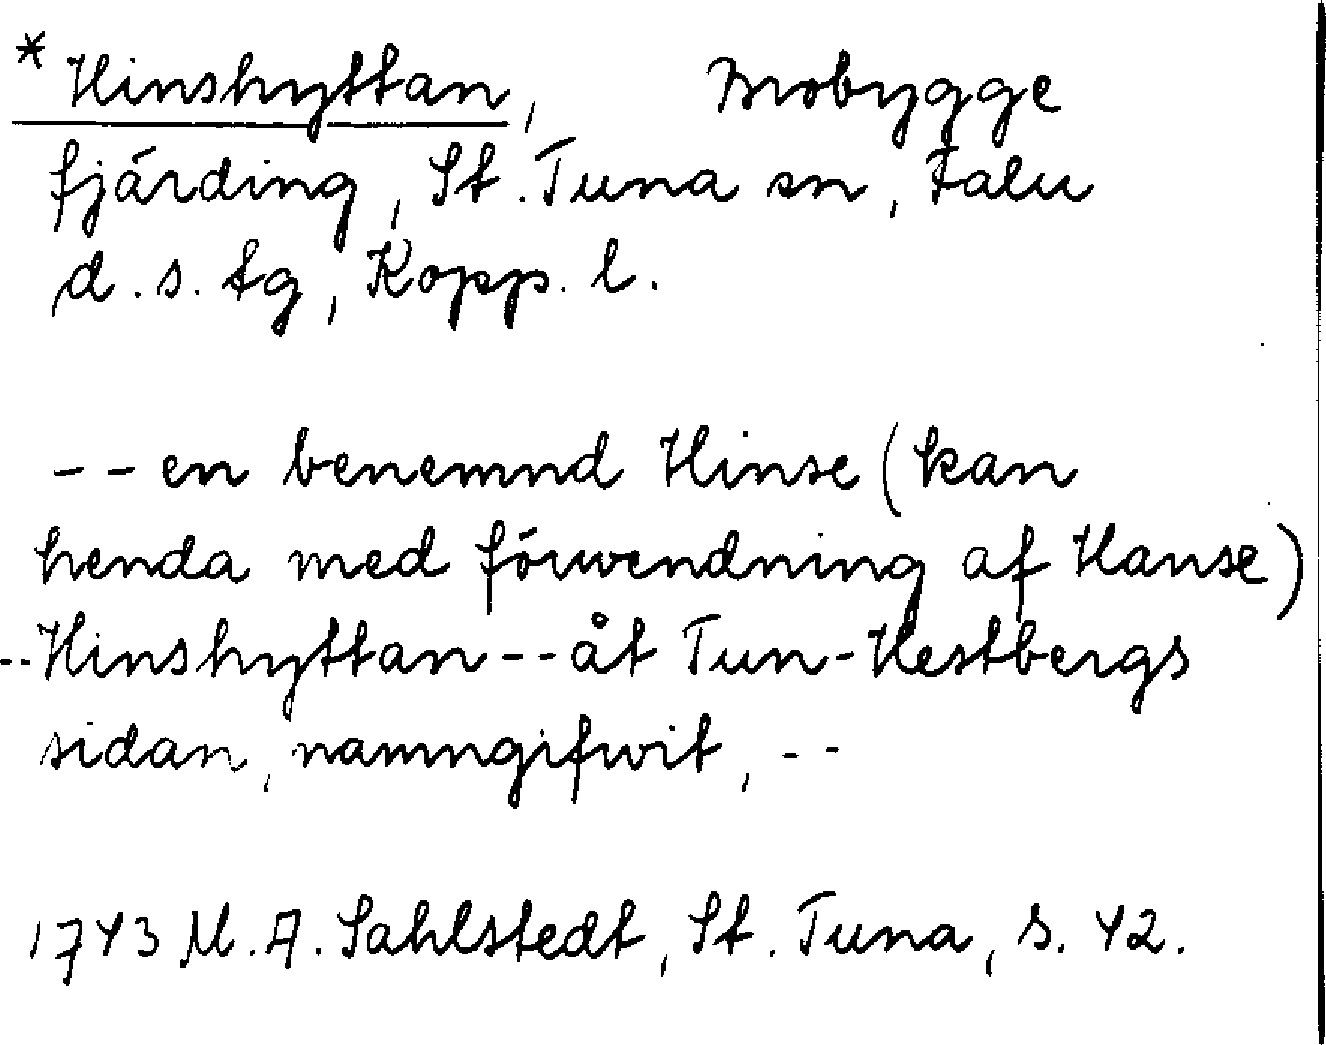 * Hinshyttan, Mobygge
fjärding, St. Tuna sn, Falu
d. s. tg, Kopp. l.
-- en benemnd Hinse (kan
henda med förwendning af Hanse)
-- Hinshyttan -- åt Tun-Hestbergs
sidan, namngifwit, --
1743 M. A. Sahlstedt, St. Tuna, s. 42.